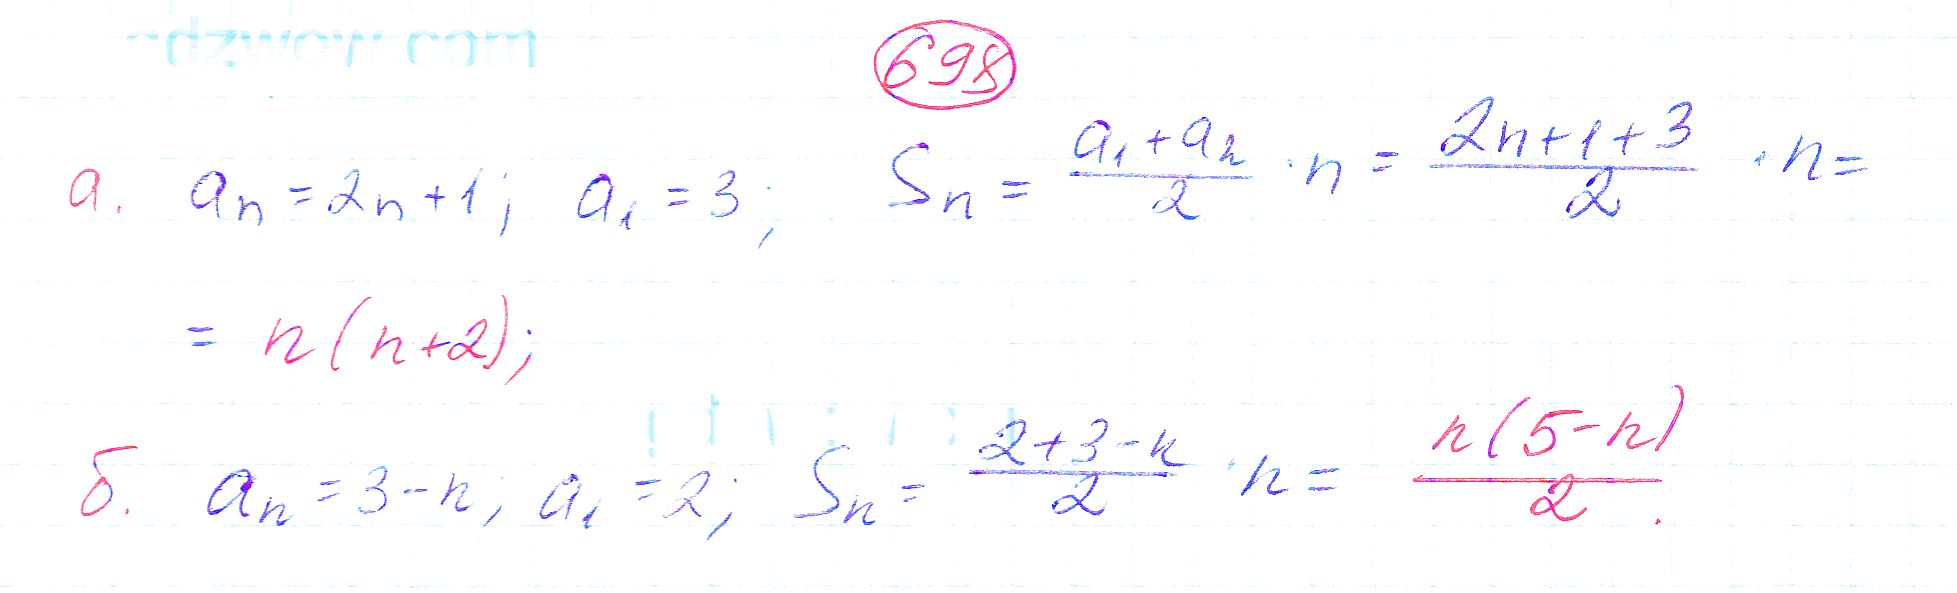 698
а. aₙ = 2n+1; a₁ = 3; Sₙ = (a₁+aₙ)/2 · n = (2n+1+3)/2 · n =
= n(n+2);
б. aₙ = 3-n; a₁ = 2; Sₙ = (2+3-n)/2 · n = n(5-n)/2.